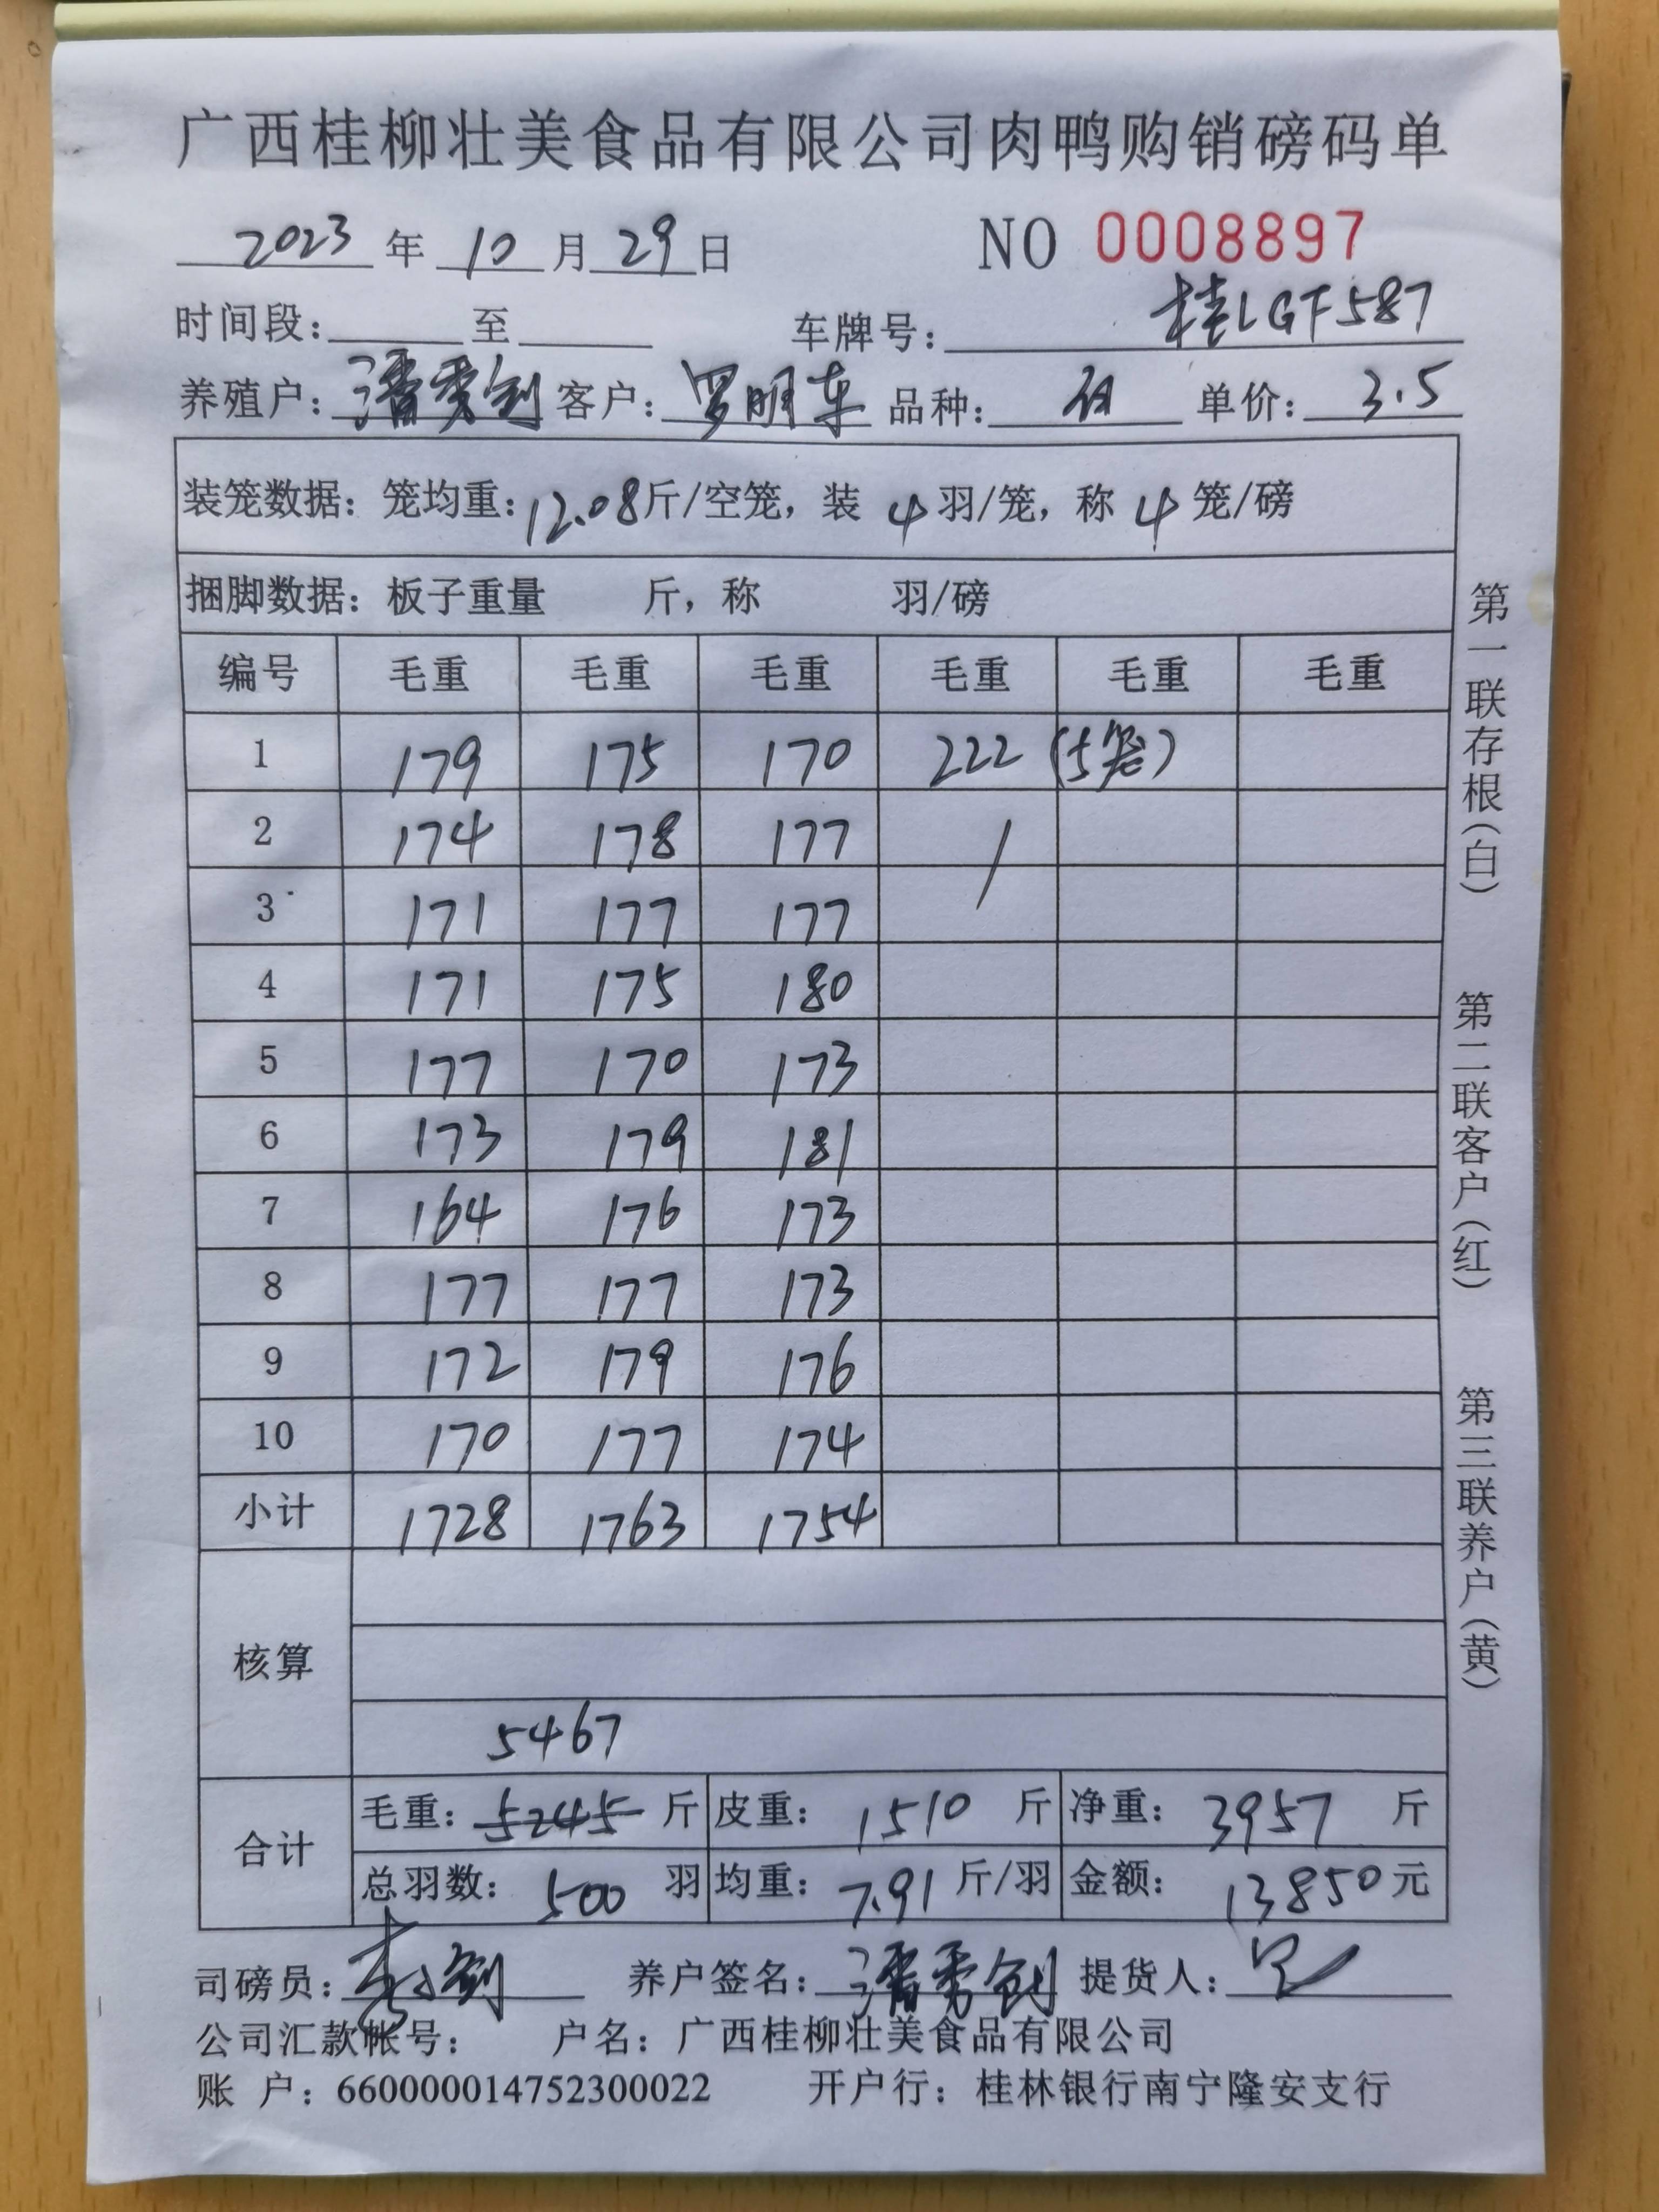 广西桂柳壮美食品有限公司肉鸭购销磅码单
2023年10月29日 NO 0008897
时间段: 至 车牌号: 桂LGF587
养殖户: 潘秀剑 客户: 罗明车 品种: 白 单价: 3.5
装笼数据: 笼均重: 12.08斤/空笼, 装 4 羽/笼, 称 4 笼/磅
捆脚数据: 板子重量 斤, 称 羽/磅
编号 毛重 毛重 毛重 毛重 毛重 毛重
1 179 175 170 222 (5笼)
2 174 178 177 /
3 171 177 177
4 171 175 180
5 177 170 173
6 173 179 181
7 164 176 173
8 177 177 173
9 172 179 176
10 170 177 174
小计 1728 1763 1754
核算
5467
合计 毛重: 5245 斤 皮重: 1510 斤 净重: 3957 斤
总羽数: 500 羽 均重: 7.91 斤/羽 金额: 13850元
司磅员: 养户签名: 潘秀剑 提货人:
公司汇款帐号: 户名: 广西桂柳壮美食品有限公司
账 户: 660000014752300022 开户行: 桂林银行南宁隆安支行
第一联存根(白) 第二联客户(红) 第三联养户(黄)